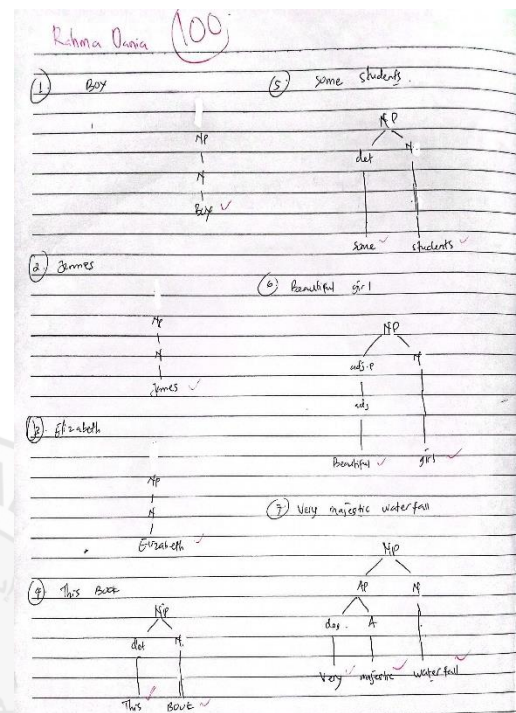 Rahma Dania 100
1 Boy
NP
N
Boy
2. Jemmes
NP
N
jemmes
3. Elizabeth
NP
N
Elizabeth
4 This Book
NP
det N
This Book
5 some students.
NP
det N.
some students
6 Beautiful girl
NP
adj.p N
adj
Beautiful girl
7 Very majestic waterfall
NP
AP N
deg. A
Very majestic waterfall